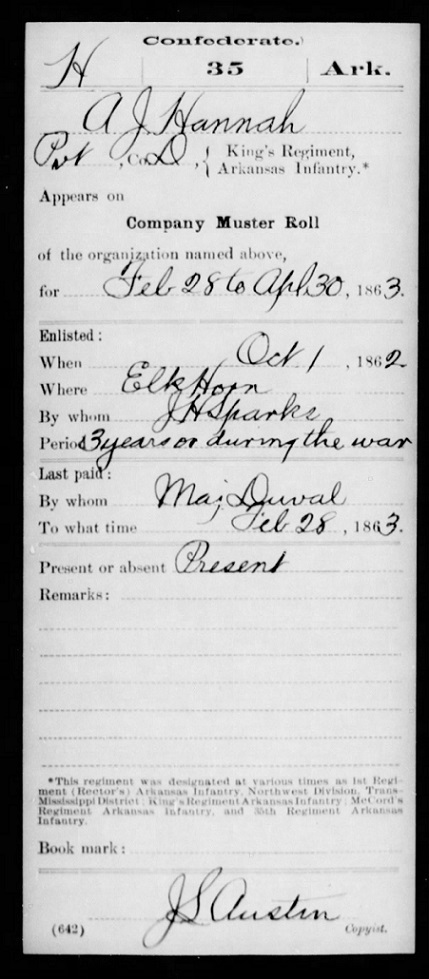 Confederate.
H | 35 | Ark.
A J Hannah
Pvt, Co. D, { King's Regiment,
Arkansas Infantry.*
Appears on
Company Muster Roll
of the organization named above,
for Feb 28 to Apl 30, 1863.
Enlisted:
When Oct 1, 1862
Where Elk Horn
By whom J H Sparks
Period 3 years or during the war
Last paid:
By whom Maj Duval
To what time Feb 28, 1863.
Present or absent Present
Remarks:
*This regiment was designated at various times as 1st Regi-
ment (Rector's) Arkansas Infantry, Northwest Division, Trans-
Mississippi District; King's Regiment Arkansas Infantry; McCord's
Regiment Arkansas Infantry, and 35th Regiment Arkansas
Infantry.
Book mark:
J S Austin
(642) Copyist.